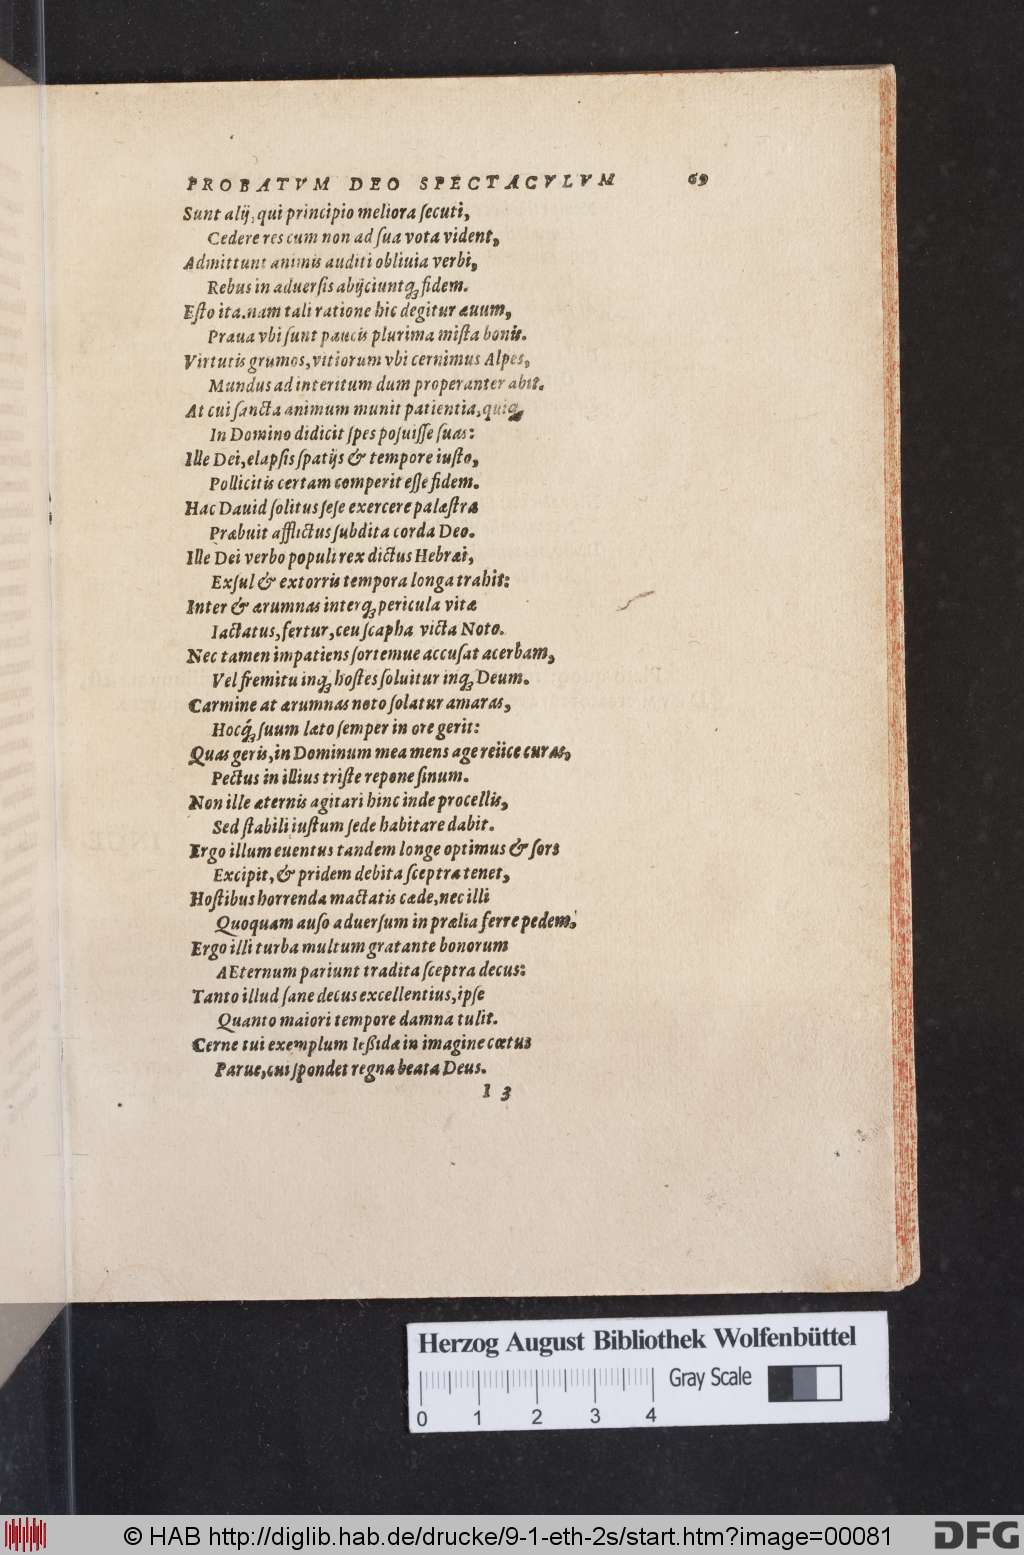 PROBATVM DEO SPECTACVLVM 69
Sunt alij, qui principio meliora ſecuti,
Cedere res cum non ad ſua vota vident,
Admittunt animis auditi obliuia verbi,
Rebus in aduerſis abijciuntq́ꝫ fidem.
Eſto ita. nam tali ratione hic degitur æuum,
Praua vbi ſunt paucis plurima miſta bonis.
Virtutis grumos, vitiorum vbi cernimus Alpes,
Mundus ad interitum dum properanter abit.
At cui ſancta animum munit patientia, quiqꝫ
In Domino didicit ſpes poſuiſſe ſuas:
Ille Dei, elapſis ſpatijs & tempore iuſto,
Pollicitis certam comperit eſſe fidem.
Hac Dauid ſolitus ſeſe exercere palæſtra
Præbuit afflictus ſubdita corda Deo.
Ille Dei verbo populi rex dictus Hebræi,
Exſul & extorris tempora longa trahit:
Inter & ærumnas interqꝫ pericula vitæ
Iactatus, fertur, ceu ſcapha victa Noto.
Nec tamen impatiens ſortemue accuſat acerbam,
Vel fremitu inqꝫ hoſtes ſoluitur inqꝫ Deum.
Carmine at ærumnas noto ſolatur amaras,
Hocq́ꝫ ſuum læto ſemper in ore gerit:
Quas geris, in Dominum mea mens age reiice curas,
Pectus in illius triſte repone ſinum.
Non ille æternis agitari hinc inde procellis,
Sed ſtabili iuſtum ſede habitare dabit.
Ergo illum euentus tandem longe optimus & ſors
Excipit, & pridem debita ſceptra tenet,
Hoſtibus horrenda mactatis cæde, nec illi
Quoquam auſo aduerſum in prælia ferre pedem.
Ergo illi turba multum gratante bonorum
AEternum pariunt tradita ſceptra decus:
Tanto illud ſane decus excellentius, ipſe
Quanto maiori tempore damna tulit.
Cerne tui exemplum Ießidæ in imagine cœtus
Parue, cui ſpondet regna beata Deus.
I 3
Herzog August Bibliothek Wolfenbüttel
Gray Scale
0 1 2 3 4
© HAB http://diglib.hab.de/drucke/9-1-eth-2s/start.htm?image=00081
DFG